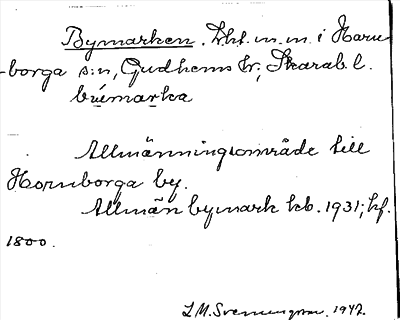 Bymarken. Lht. m. m. i Horn-
-borga s:n, Gudhems hr, Skarab. l.
búema̱rka
Allmänningsområde till
Hornborga by.
Allmän bymark kb. 1931; kf.
1800.
L M. Svenungson. 1942.